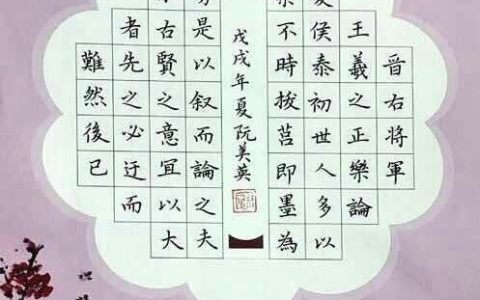 晉右將軍
王羲之正樂論
侯泰初世人多以
不時拔莒即墨為
戊戌年夏阮美英
是以叙而論之夫
古賢之意宜以大
者先之必迂而
難然後已